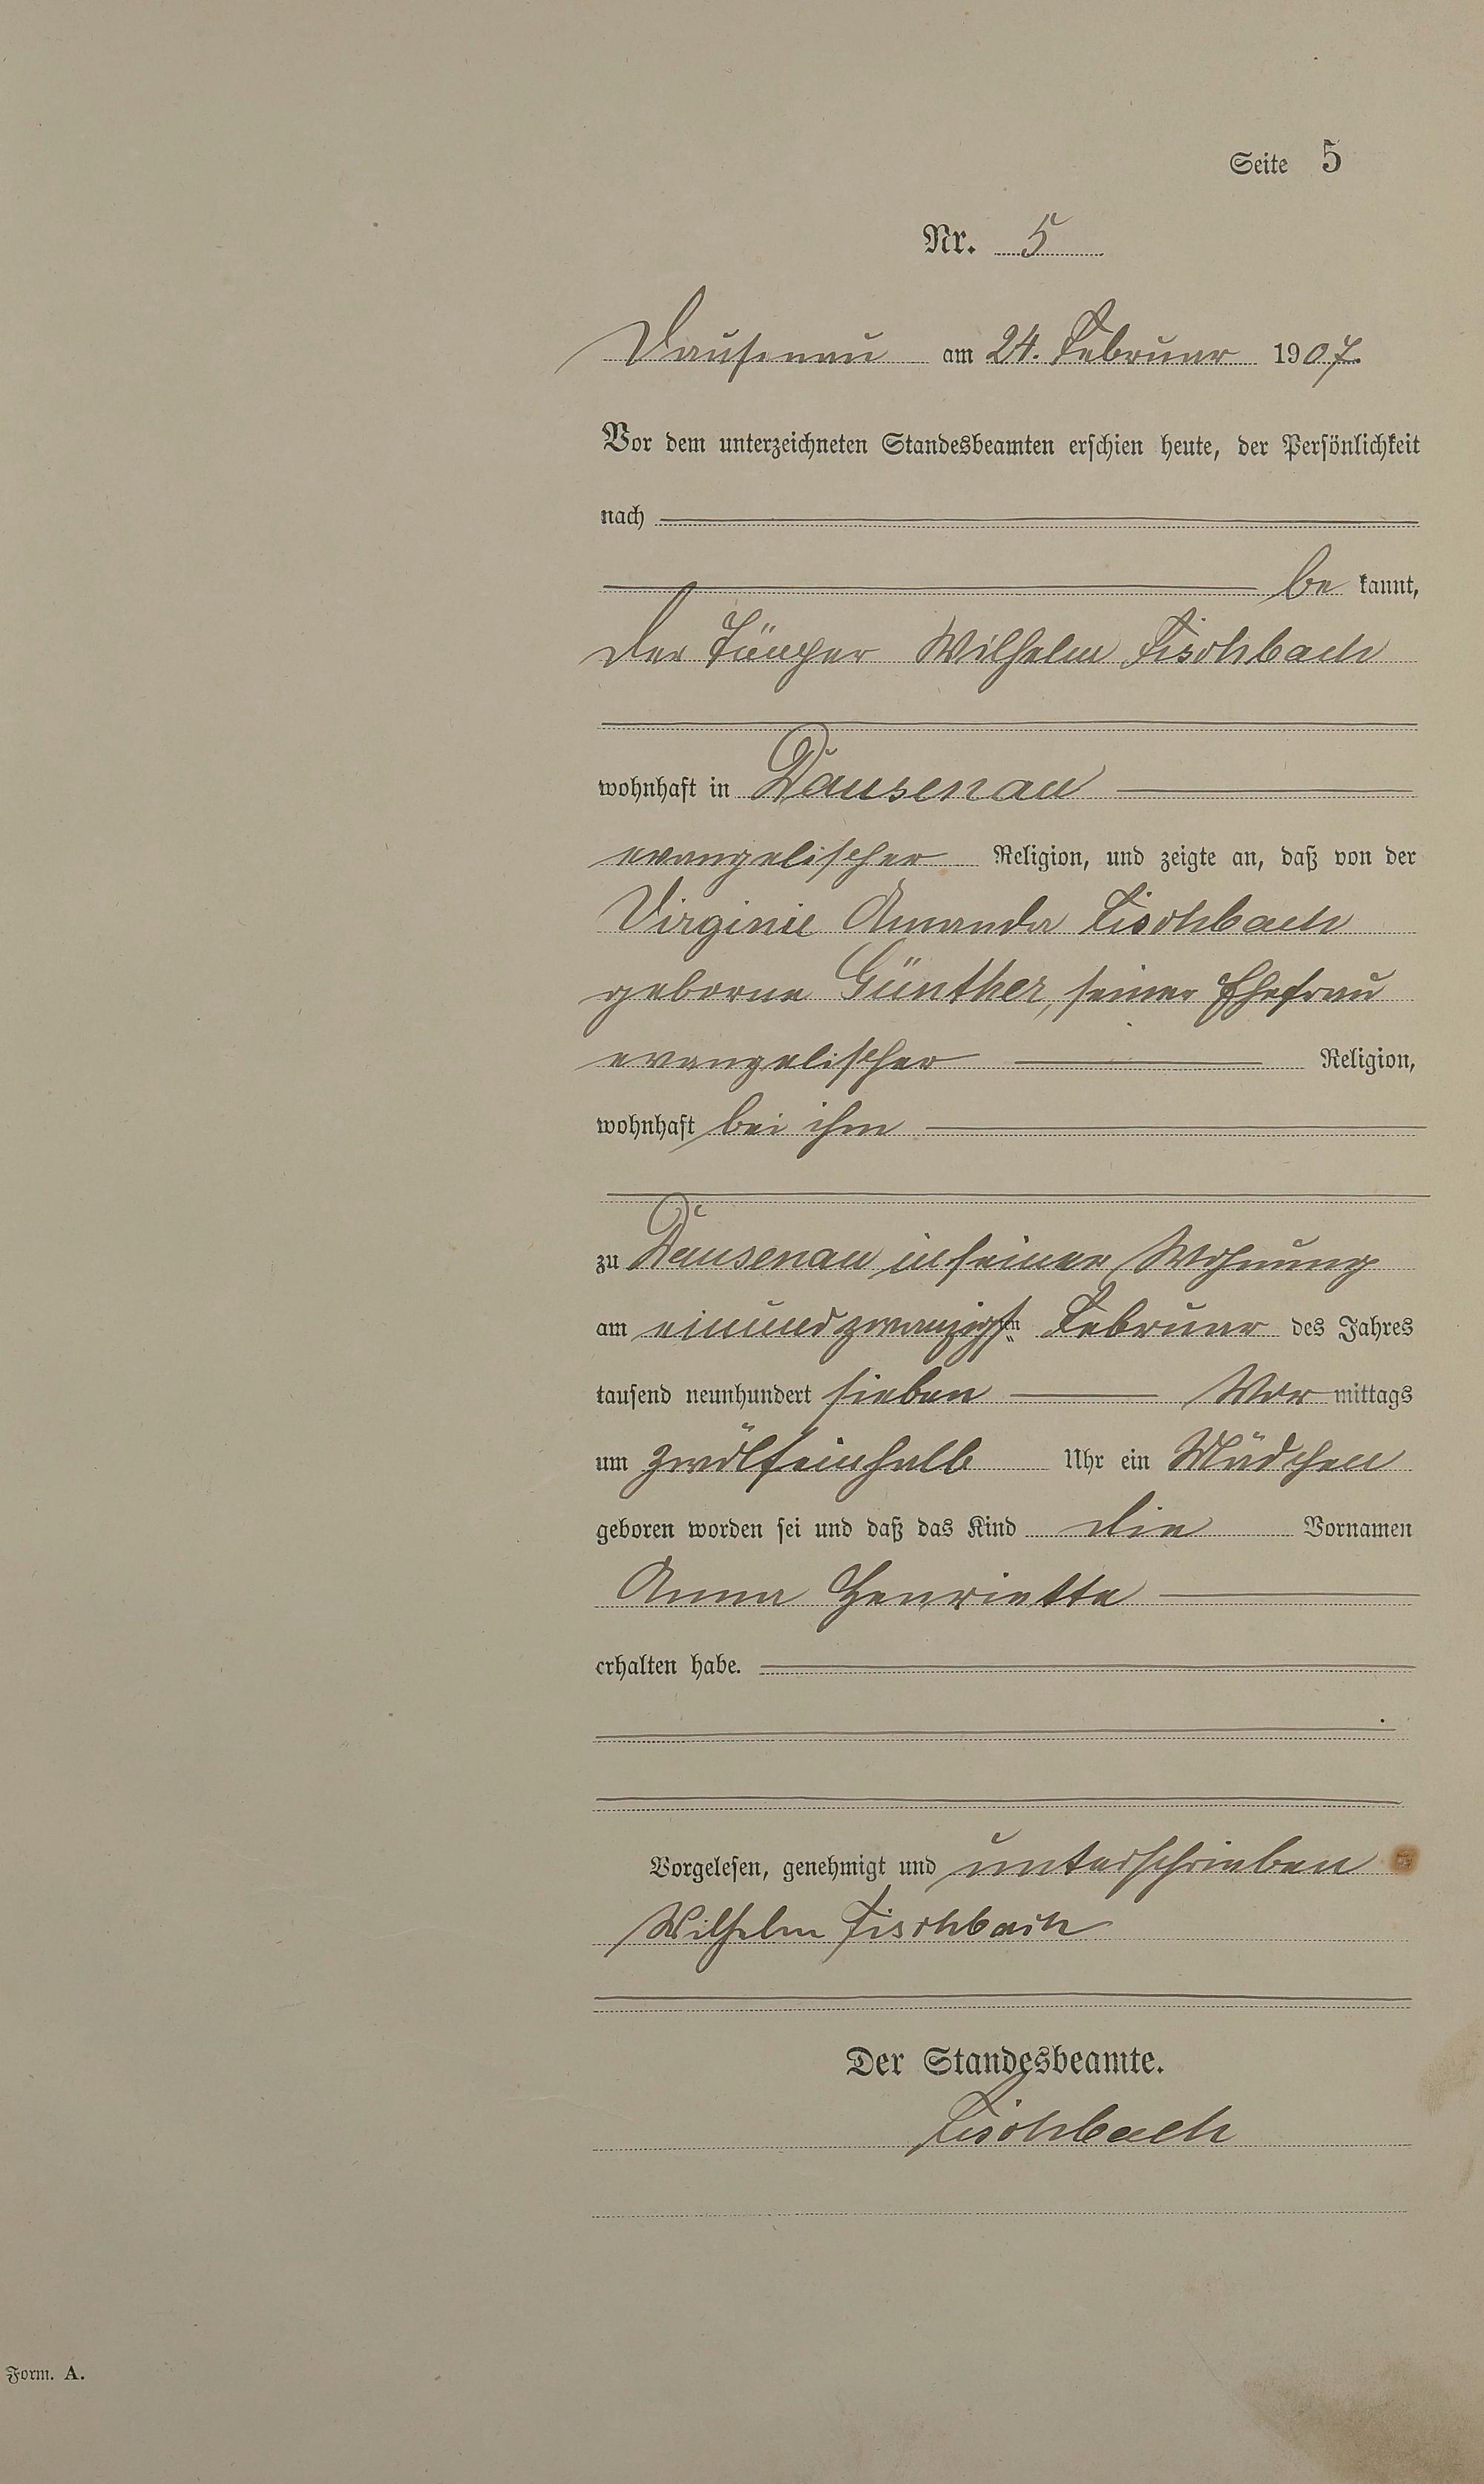 Seite 5
Nr. 5
Dausenau am 24. Februar 1907.
Vor dem unterzeichneten Standesbeamten erschien heute, der Persönlichkeit
nach
be kannt,
der Tüncher Wilhelm Fischbach
wohnhaft in Dausenau
evangelischer Religion, und zeigte an, daß von der
Virginie Amanda Fischbach
geborne Günther, seiner Ehefrau
evangelischer Religion,
wohnhaft bei ihm
zu Dausenau in seiner Wohnung
am einundzwanzigsten Februar des Jahres
tausend neunhundert sieben Vor mittags
um zwölfeinhalb Uhr ein Mädchen
geboren worden sei und daß das Kind die Vornamen
Anna Henriette
erhalten habe.
Vorgelesen, genehmigt und unterschrieben
Wilhelm Fischbach
Der Standesbeamte.
Fischbach
Form. A.